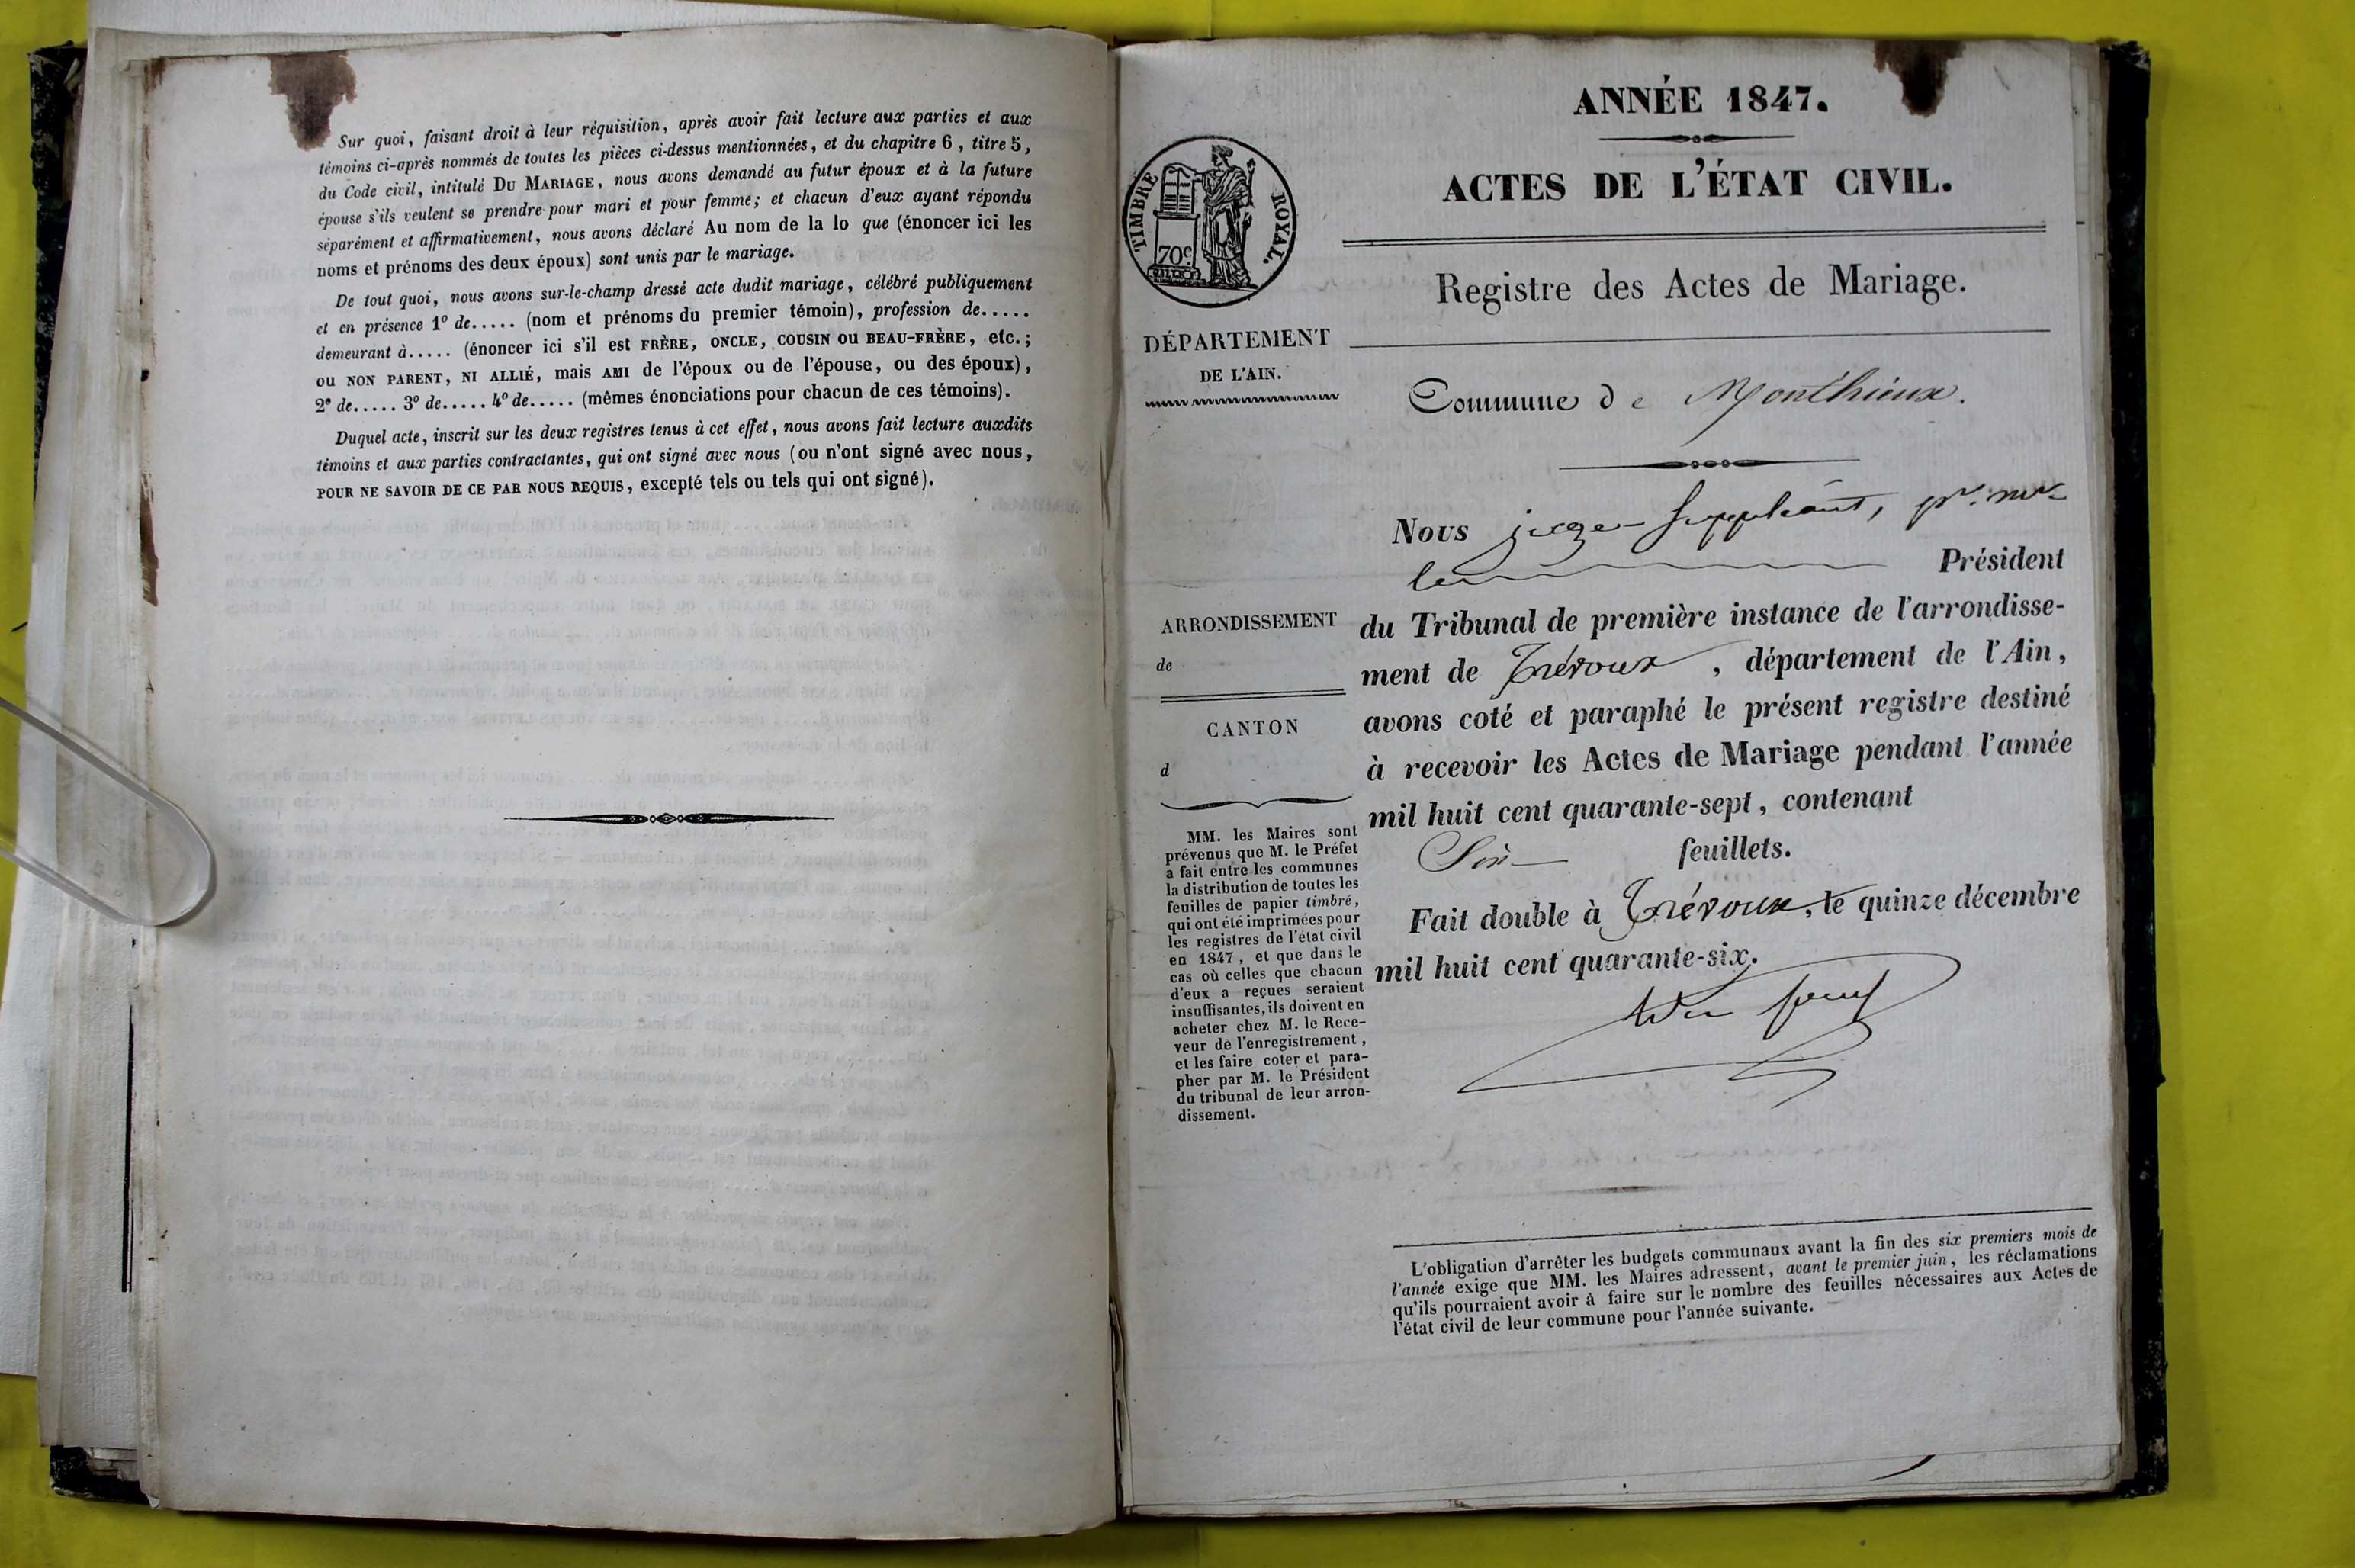 Sur quoi, faisant droit à leur réquisition, après avoir fait lecture aux parties et aux
témoins ci-après nommés de toutes les pièces ci-dessus mentionnées, et du chapitre 6, titre 5,
du Code civil, intitulé DU MARIAGE, nous avons demandé au futur époux et à la future
épouse s'ils veulent se prendre pour mari et pour femme; et chacun d'eux ayant répondu
séparément et affirmativement, nous avons déclaré Au nom de la lo que (énoncer ici les
noms et prénoms des deux époux) sont unis par le mariage.
De tout quoi, nous avons sur-le-champ dressé acte dudit mariage, célébré publiquement
et en présence 1º de..... (nom et prénoms du premier témoin), profession de.....
demeurant à..... (énoncer ici s'il est FRÈRE, ONCLE, COUSIN OU BEAU-FRÈRE, etc.;
ou NON PARENT, NI ALLIÉ, mais AMI de l'époux ou de l'épouse, ou des époux),
2º de..... 3º de..... 4º de..... (mêmes énonciations pour chacun de ces témoins).
Duquel acte, inscrit sur les deux registres tenus à cet effet, nous avons fait lecture auxdits
témoins et aux parties contractantes, qui ont signé avec nous (ou n'ont signé avec nous,
POUR NE SAVOIR DE CE PAR NOUS REQUIS, excepté tels ou tels qui ont signé).
ANNÉE 1847.
ACTES DE L'ÉTAT CIVIL.
TIMBRE ROYAL.
70c
Registre des Actes de Mariage.
DÉPARTEMENT
DE L'AIN.
Commune de Monthieux.
Nous juge-Suppléant, pr. mr
le Président
du Tribunal de première instance de l'arrondisse-
ment de Trévoux, département de l'Ain,
avons coté et paraphé le présent registre destiné
à recevoir les Actes de Mariage pendant l'année
mil huit cent quarante-sept, contenant
Six feuillets.
Fait double à Trévoux, le quinze décembre
mil huit cent quarante-six.
ARRONDISSEMENT
de
CANTON
d
MM. les Maires sont
prévenus que M. le Préfet
a fait entre les communes
la distribution de toutes les
feuilles de papier timbré,
qui ont été imprimées pour
les registres de l'état civil
en 1847, et que dans le
cas où celles que chacun
d'eux a reçues seraient
insuffisantes, ils doivent en
acheter chez M. le Rece-
veur de l'enregistrement,
et les faire coter et para-
pher par M. le Président
du tribunal de leur arron-
dissement.
L'obligation d'arrêter les budgets communaux avant la fin des six premiers mois de
l'année exige que MM. les Maires adressent, avant le premier juin, les réclamations
qu'ils pourraient avoir à faire sur le nombre des feuilles nécessaires aux Actes de
l'état civil de leur commune pour l'année suivante.